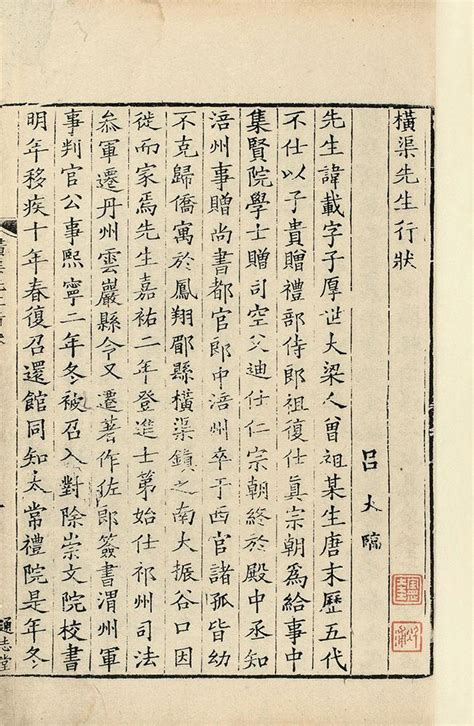 橫渠先生行狀
呂大臨
先生諱載字子厚世大梁人曾祖某生唐末歷五代
不仕以子貴贈禮部侍郎祖復仕眞宗朝爲給事中
集賢院學士贈司空父迪仕仁宗朝終於殿中丞知
涪州事贈尚書都官郎中涪州卒于西官諸孤皆幼
不克歸僑寓於鳳翔郿縣橫渠鎮之南大振谷口因
徙而家焉先生嘉祐二年登進士第始仕祁州司法
叅軍遷丹州雲巖縣令又遷著作佐郎簽書渭州軍
事判官公事熙寧二年冬被召入對除崇文院校書
明年移疾十年春復召還館同知太常禮院是年冬
通志堂